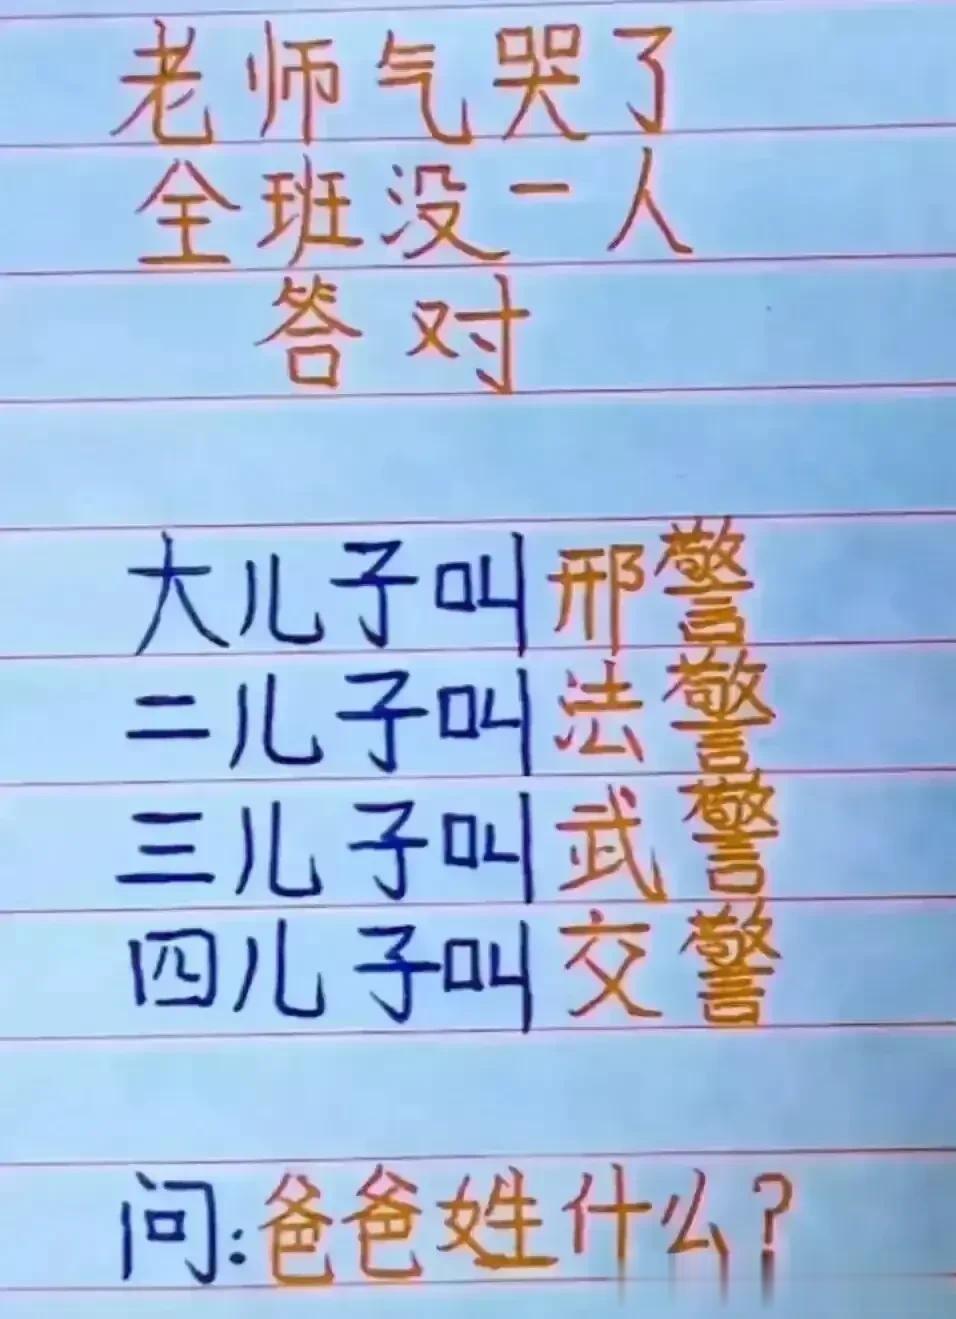 老师气哭了
全班没一人
答对
大儿子叫邢警
二儿子叫法警
三儿子叫武警
四儿子叫交警
问:爸爸姓什么?